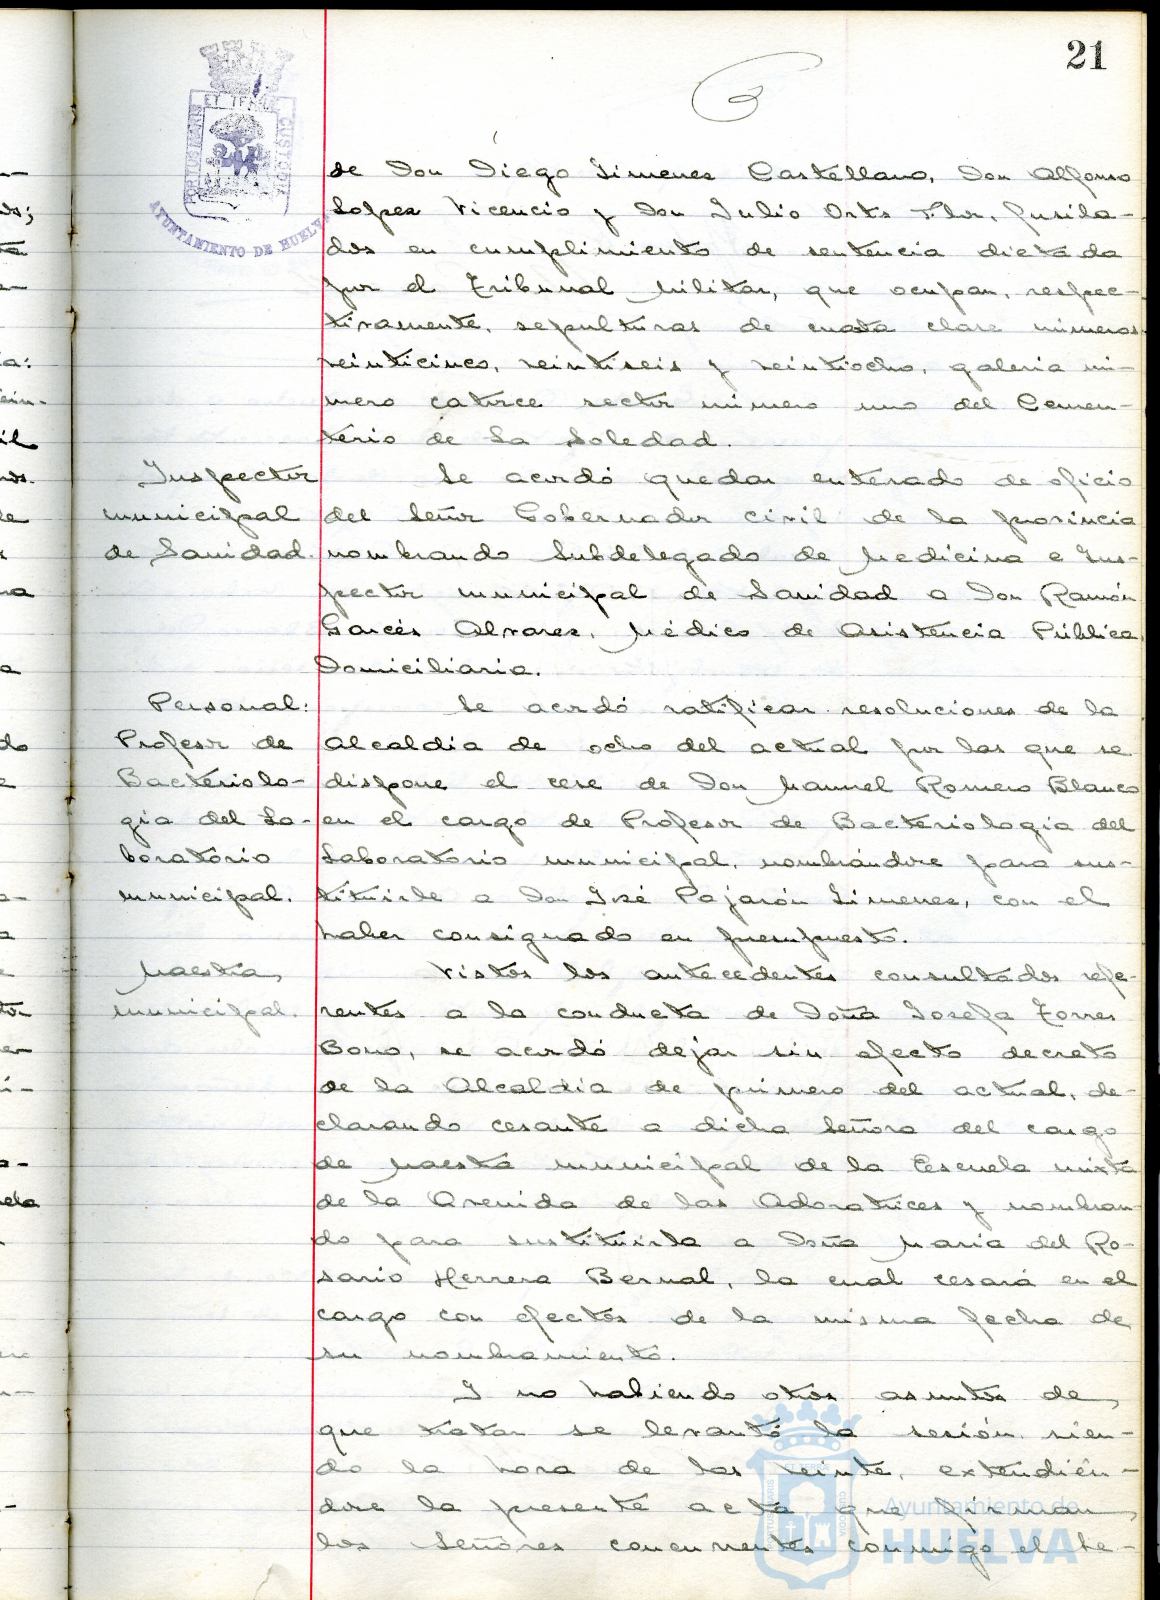 21
PORTUS MARIS ET TERRAE CUSTODIA
AYUNTAMIENTO DE HUELVA
de Don Diego Jimenez Castellano, Don Alfonso
Lopez Vicencio y Don Julio Orts Flor, fusila-
dos en cumplimiento de sentencia dictada
por el Tribunal Militar, que ocupan, respec-
tivamente, sepulturas de cuarta clase números
veinticinco, veintiseis y veintiocho, galeria nú-
mero catorce sector número uno del Cemen-
terio de La Soledad.
Inspector
municipal
de Sanidad.
Se acordó quedar enterado de oficio
del Señor Gobernador civil de la provincia
nombrando Subdelegado de Medicina e Ins-
pector municipal de Sanidad a Don Ramón
Garcés Alvarez, Médico de Asistencia Pública
Domiciliaria.
Personal:
Profesor de
Bacteriolo-
gia del La-
boratorio
municipal.
Se acordó ratificar resoluciones de la
Alcaldia de ocho del actual por las que se
dispone el cese de Don Manuel Romero Blanco
en el cargo de Profesor de Bacteriologia del
Laboratorio municipal, nombrándose para sus-
tituirle a Don José Pajarón Jimenez, con el
haber consignado en presupuesto.
Maestra
municipal.
Vistos los antecedentes consultados refe-
rentes a la conducta de Doña Josefa Torres
Bono, se acordó dejar sin efecto decreto
de la Alcaldia de primero del actual, de-
clarando cesante a dicha Señora del cargo
de Maestra municipal de la Escuela mixta
de la Avenida de las Adoratrices y nombran-
do para sustituirla a Doña Maria del Ro-
sario Herrera Bernal, la cual cesará en el
cargo con efectos de la misma fecha de
su nombramiento.
Y no habiendo otros asuntos de
que tratar se levantó la sesión, sien-
do la hora de las veinte, extendién-
dose la presente acta que firman
los Señores concurrentes conmigo el Se-
Ayuntamiento de
HUELVA